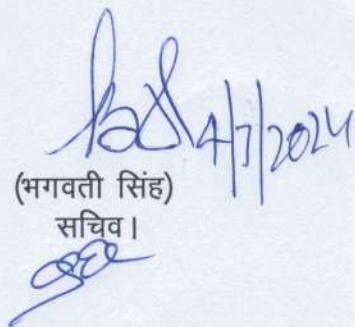 4/7/2024
(भगवती सिंह)
सचिव।